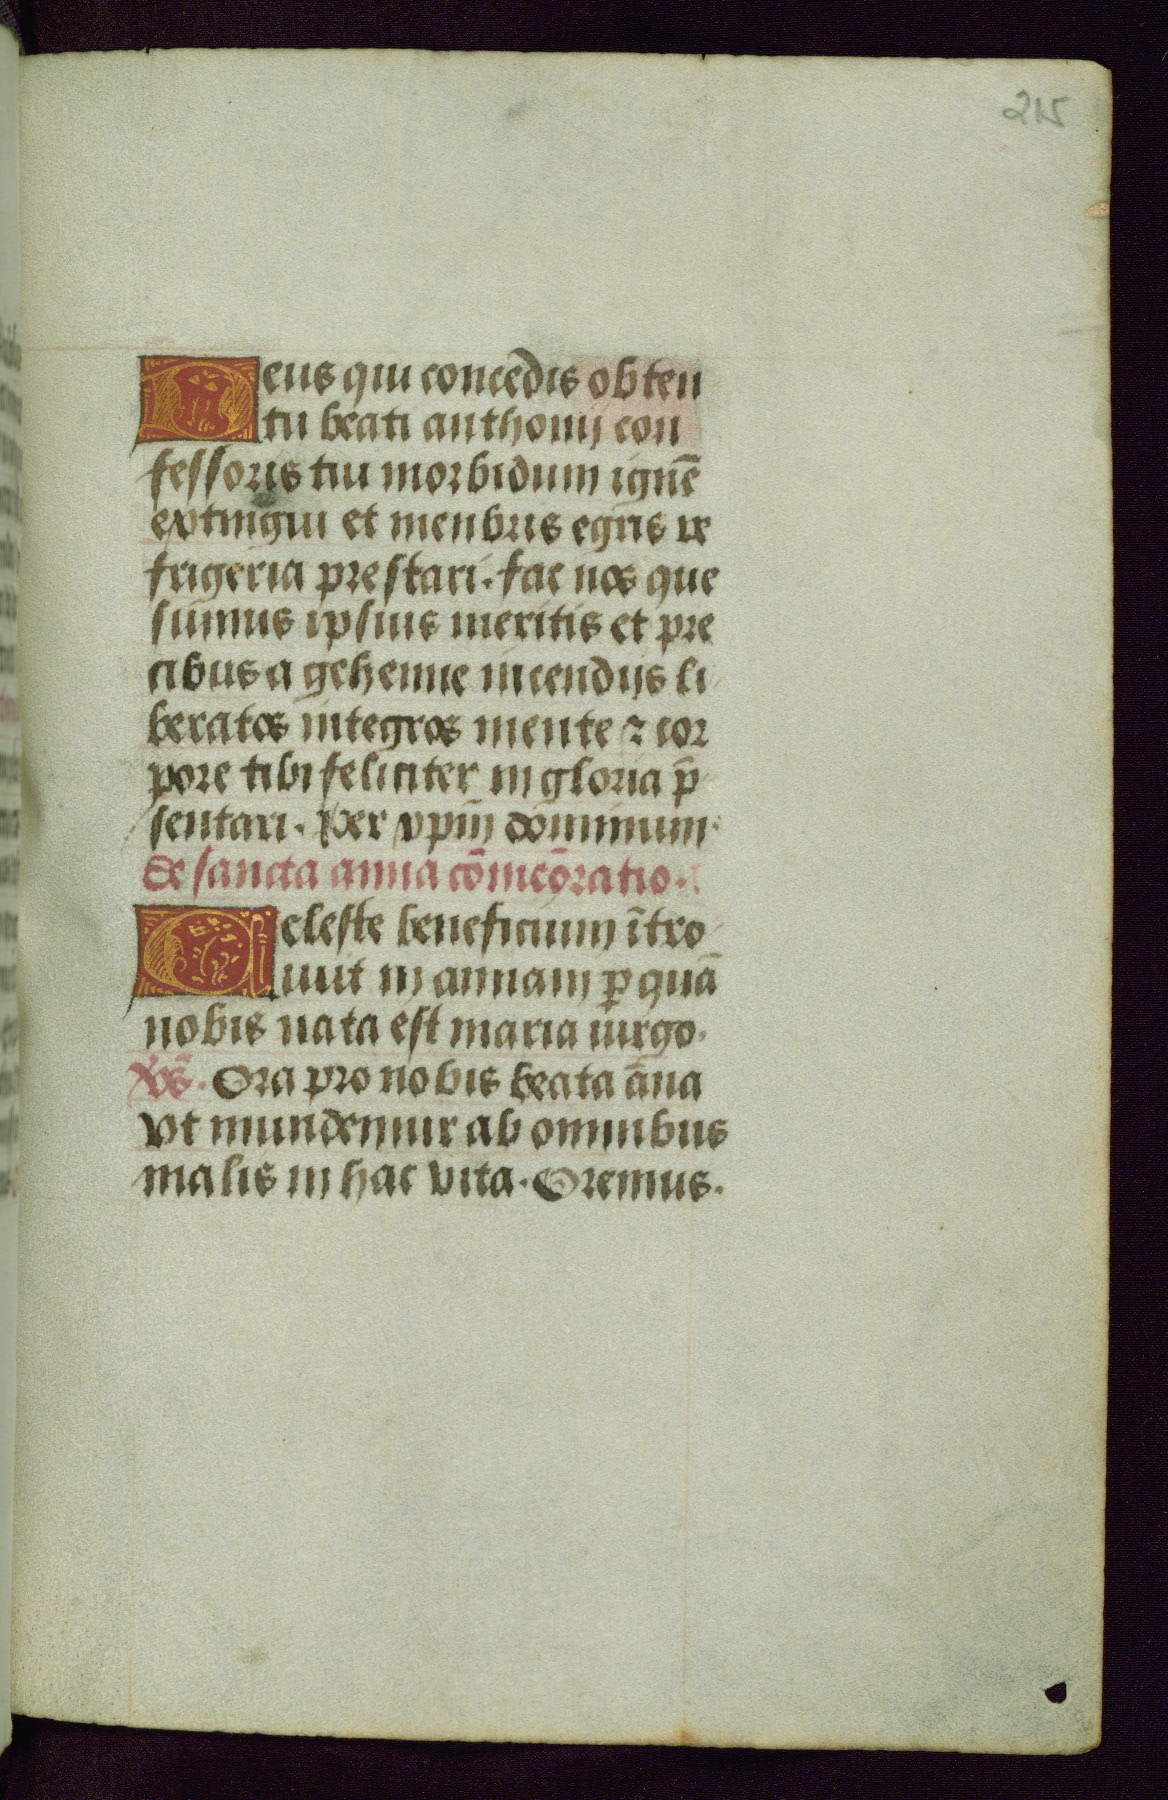 215
Deus qui concedis obten
tu beati anthonij con
fessoris tui morbidum ignē
extingui et menbris egris re
frigeria prestari. fac nos que
sumus ipsius meritis et pre
cibus a gehenne incendijs li
beratos integros mente ⁊ cor
pore tibi feliciter in gloria p̄
sentari. Per xpm̄ dominum.
de sancta anna cōmeōratio.
Celeste beneficium ītro
iuit in annam ꝑ quā
nobis nata est maria uirgo.
v̄s. Ora pro nobis beata āna
vt mundemur ab omnibus
malis in hac vita. Oremus.